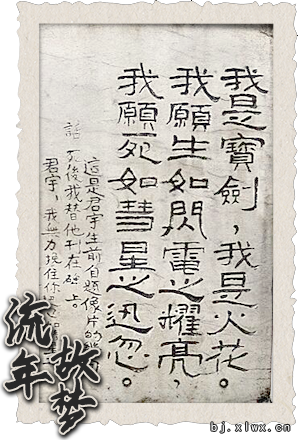 我是寶劍，我是火花。
我願生如閃電之耀亮，
我願死如彗星之迅忽。
這是君宇生前自題像片的
話，死後我替他刊在碑上。
君宇，我無力挽住你
流年
故梦
bj.xlwx.cn